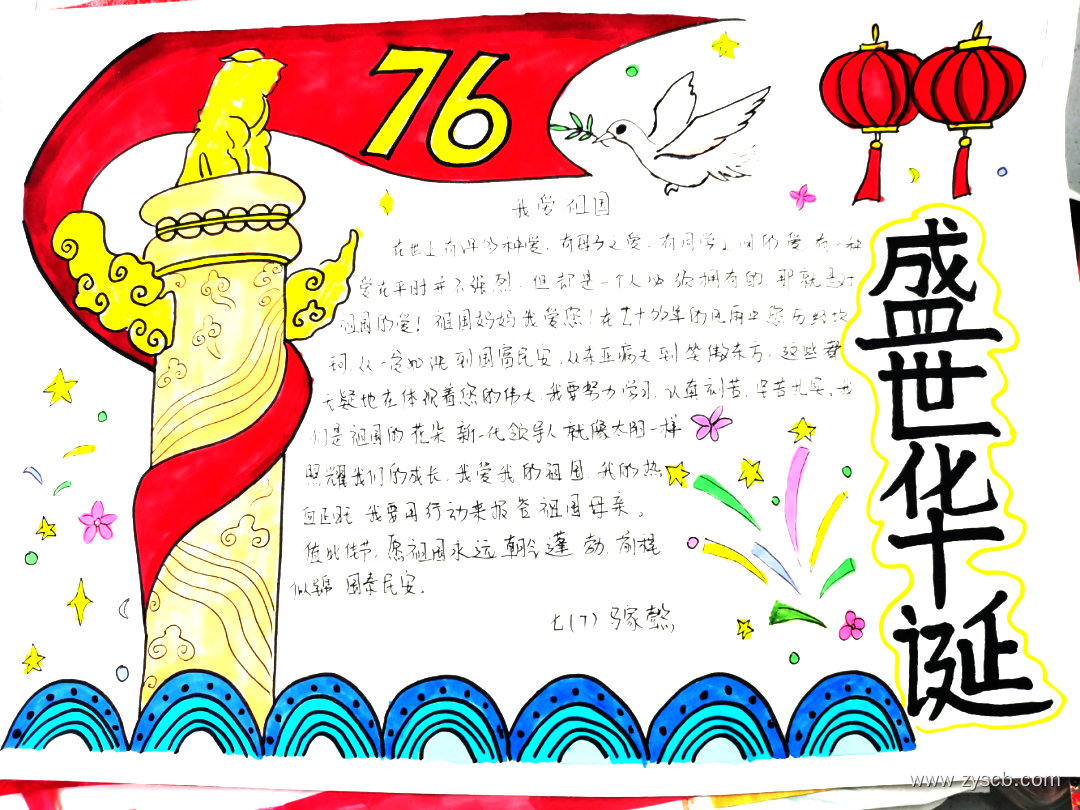 76
我爱祖国
在世上有许多种爱.有母子之爱.有同学之间的爱 有一种
爱在平时并不强烈.但却是一个人必须拥有的 那就是对
祖国的爱!祖国妈妈我爱您!在七十多年的风雨中您历经坎
坷.从一贫如洗到国富民安.从东亚病夫到笑傲东方.这些都
无疑地在体现着您的伟大.我要努力学习.认真刻苦.坚苦扎实.我
们是祖国的花朵 新一代领导人就像太阳一样
照耀我们的成长.我爱我的祖国.我的热
血正旺 我要用行动来报答祖国母亲。
值此佳节.愿祖国永远朝气蓬勃.前程
似锦 国泰民安.
七(7) 马家懿
盛世华诞
www.zyscb.com